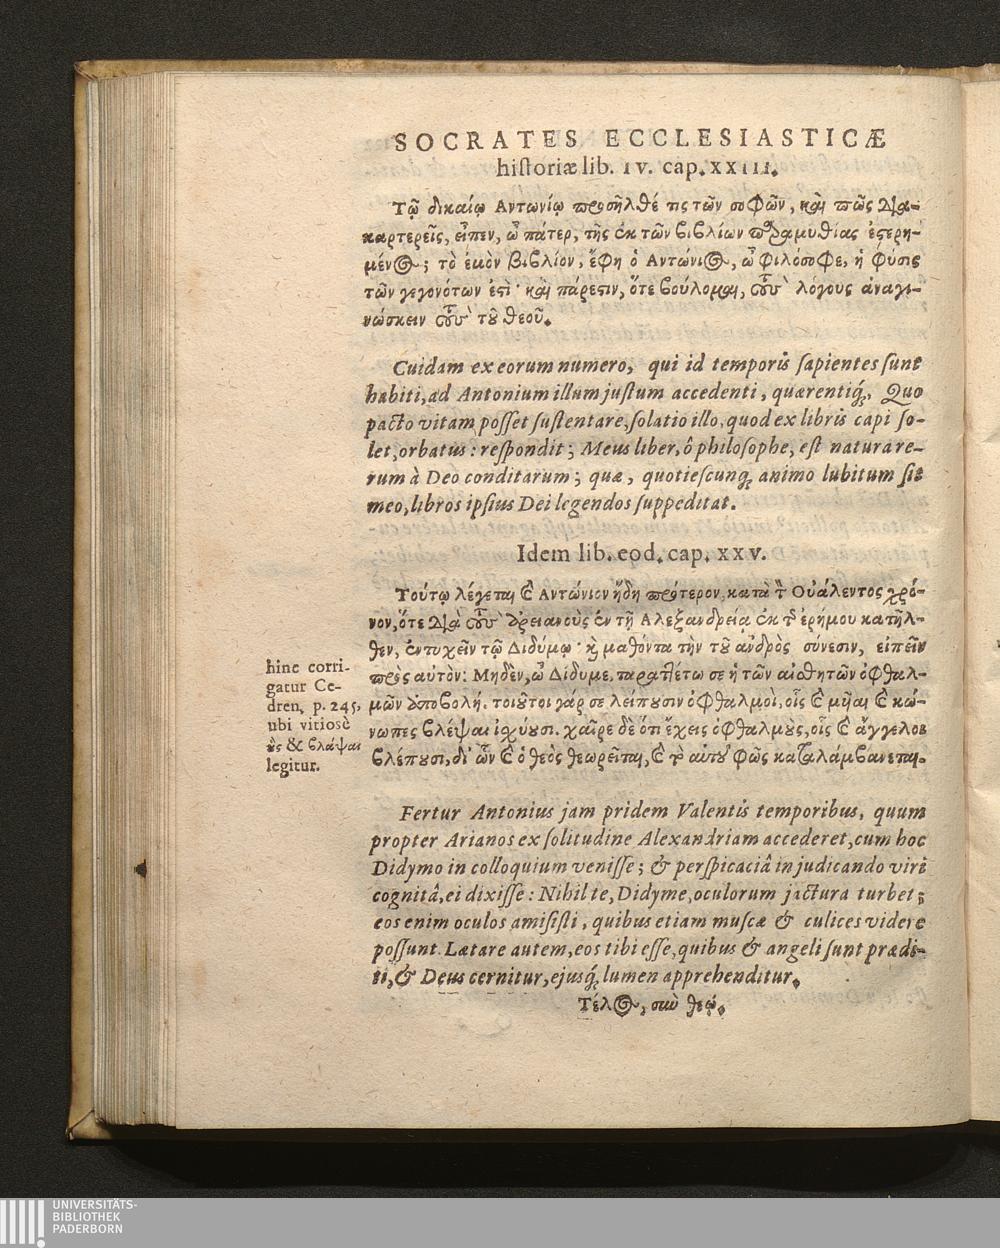 SOCRATES ECCLESIASTICÆ
hiſtoriæ lib. IV. cap. XXIII.
Τῷ δικαίῳ Αντωνίῳ προσῆλθέ τις τῶν σοφῶν, καὶ πῶς δια-
καρτερεῖς, εἶπεν, ὦ πάτερ, τῆς ἐκ τῶν βιβλίων παραμυθίας ἐςερη-
μένος; τὸ ἐμὸν βιβλίον, ἔφη ὁ Αντώνιος, ὦ φιλόσοφε, ἡ φύσις
τῶν γεγονότων ἐςὶ· καὶ πάρεςιν, ὅτε βούλομαι, τοὺς λόγους ἀναγι-
νώσκειν τοὺς τοῦ θεοῦ.
Cuidam ex eorum numero, qui id temporis ſapientes ſunt
habiti, ad Antonium illum juſtum accedenti, quærentiq́;, Quo
pacto vitam poſſet ſuſtentare, ſolatio illo, quod ex libris capi ſo-
let, orbatus: reſpondit; Meus liber, ô philoſophe, eſt natura re-
rum à Deo conditarum; quæ, quotieſcunq; animo lubitum ſit
meo, libros ipſius Dei legendos ſuppeditat.
Idem lib. eod. cap. XXV.
Τούτῳ λέγεται καὶ Αντώνιον ἤδη πρότερον κατὰ τ Οὐάλεντος χρό-
νον, ὅτε διὰ τοὺς ἀρειανοὺς ἐν τῇ Αλεξανδρεία ἐκ τ ἐρήμου κατῆλ-
θεν, ἐντυχεῖν τῷ Διδύμῳ· κὶ μαθόντα τὴν τοῦ ἀνδρὸς σύνεσιν, εἰπεῖν
πρὸς αὐτὸν: Μηδὲν, ὦ Δίδυμε, ταραττέτω σε ἡ τῶν αἰσθητῶν ὀφθαλ-
μῶν ἀποβολή. τοιοῦτοι γάρ σε λείπουσιν ὀφθαλμοὶ, οἷς καὶ μῦαι καὶ κώ-
νωπες βλέψαι ἰσχύουσι. χαῖρε δὲ ὅτι ἔχεις ὀφθαλμοὺς, οἷς καὶ ἄγγελοι
βλέπουσι, δι' ὧν καὶ ὁ θεὸς θεωρεῖται, καὶ τὸ αὐτοῦ φῶς καταλάμβανεται.
hinc corri-
gatur Ce-
dren. p. 245,
ubi vitiosè
ὓς & βλάψαι
legitur.
Fertur Antonius jam pridem Valentis temporibus, quum
propter Arianos ex ſolitudine Alexandriam accederet, cum hoc
Didymo in colloquium veniſſe; & perſpicaciâ in judicando viri
cognitâ, ei dixiſſe: Nihil te, Didyme, oculorum jactura turbet;
eos enim oculos amiſiſti, quibus etiam muſcæ & culices videre
poſſunt. Lætare autem, eos tibi eſſe, quibus & angeli ſunt prædi-
ti, & Deus cernitur, ejusq́; lumen apprehenditur.
Τέλος, σιὼ θεῷ.
UNIVERSITÄTS-
BIBLIOTHEK
PADERBORN